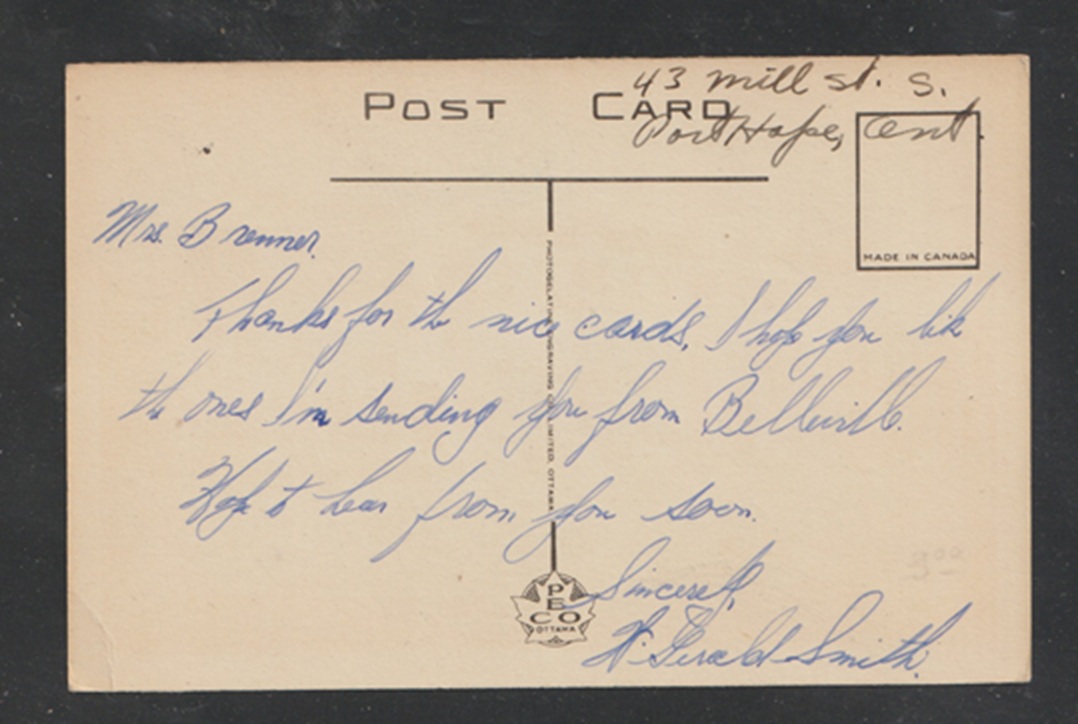 43 Mill St. S.
POST CARD
Port Hope, Ont.
MADE IN CANADA
Mrs. Brenner,
Thanks for the nice cards. I hope you like
the ones I'm sending you from Belleville.
Hope to hear from you soon.
Sincerely,
H. Gerald Smith.
PHOTOGELATINE ENGRAVING CO. LIMITED, OTTAWA
PECO
OTTAWA